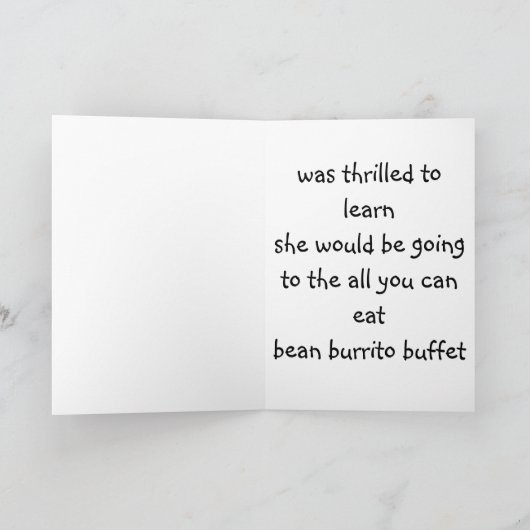 was thrilled to
learn
she would be going
to the all you can
eat
bean burrito buffet